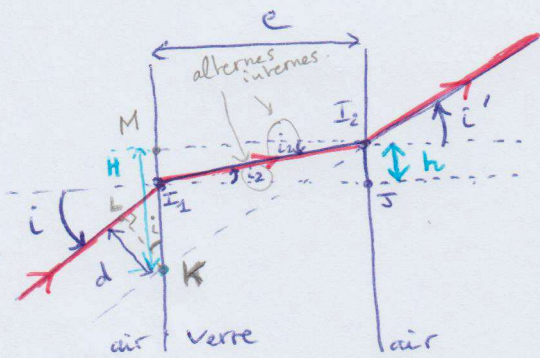 e
alternes
internes
I₂
M
i'
H
i₂
h
i₂
I₁
J
i
L
i
d
K
air verre air